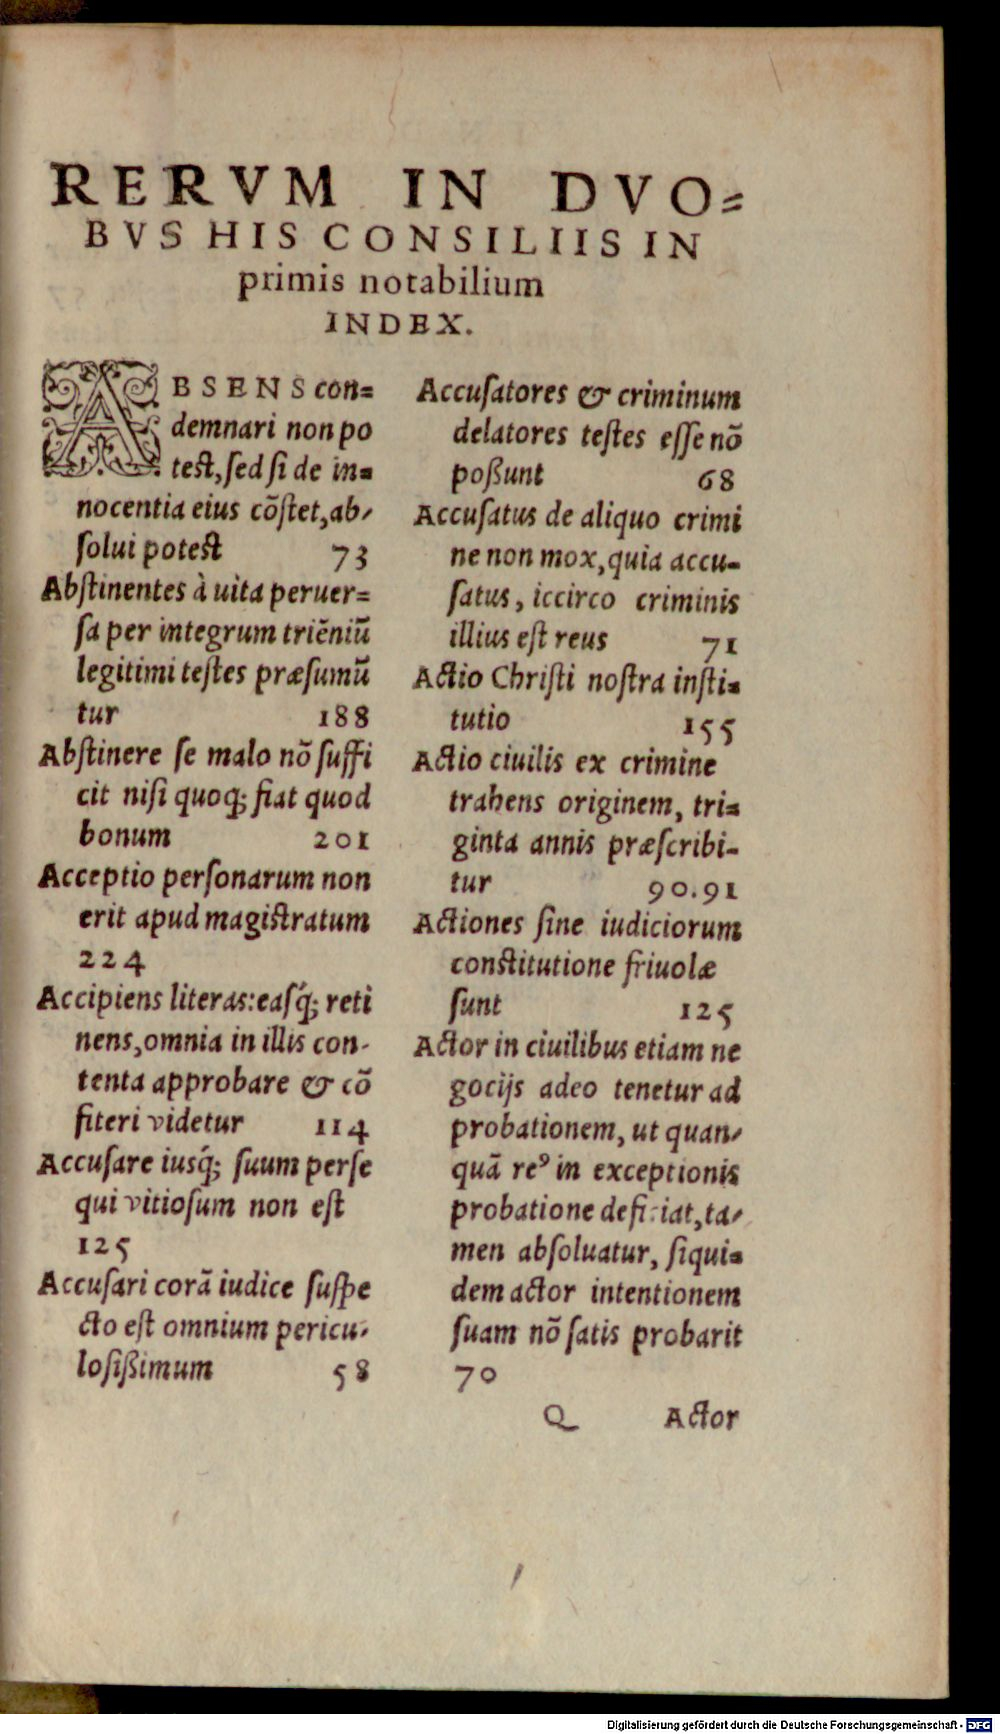 RERVM IN DVO=
BVS HIS CONSILIIS IN
primis notabilium
INDEX.
ABSENS con=
demnari non po
test, ſed ſi de in=
nocentia eius cōſtet, ab-
ſolui potest 73
Abſtinentes à uita peruer=
ſa per integrum triēniū
legitimi teſtes præſumū
tur 188
Abſtinere ſe malo nō ſuffi
cit niſi quoq; fiat quod
bonum 201
Acceptio perſonarum non
erit apud magiſtratum
224
Accipiens literas: eaſq́; reti
nens, omnia in illis con-
tenta approbare & cō
fiteri videtur 114
Accuſare iusq́; ſuum perſe
qui vitioſum non eſt
125
Accuſari corā iudice ſuſpe
cto eſt omnium pericu-
loſißimum 58
Accuſatores & criminum
delatores teſtes eſſe nō
poßunt 68
Accuſatus de aliquo crimi
ne non mox, quia accu-
ſatus, iccirco criminis
illius eſt reus 71
Actio Chriſti noſtra inſti=
tutio 155
Actio ciuilis ex crimine
trahens originem, tri=
ginta annis præſcribi-
tur 90.91
Actiones ſine iudiciorum
conſtitutione friuolæ
ſunt 125
Actor in ciuilibus etiam ne
gocijs adeo tenetur ad
probationem, ut quan-
quā reꝰ in exceptionis
probatione deficiat, ta-
men abſoluatur, ſiqui=
dem actor intentionem
ſuam nō ſatis probarit
70
Q Actor
Digitalisierung gefördert durch die Deutsche Forschungsgemeinschaft - DFG